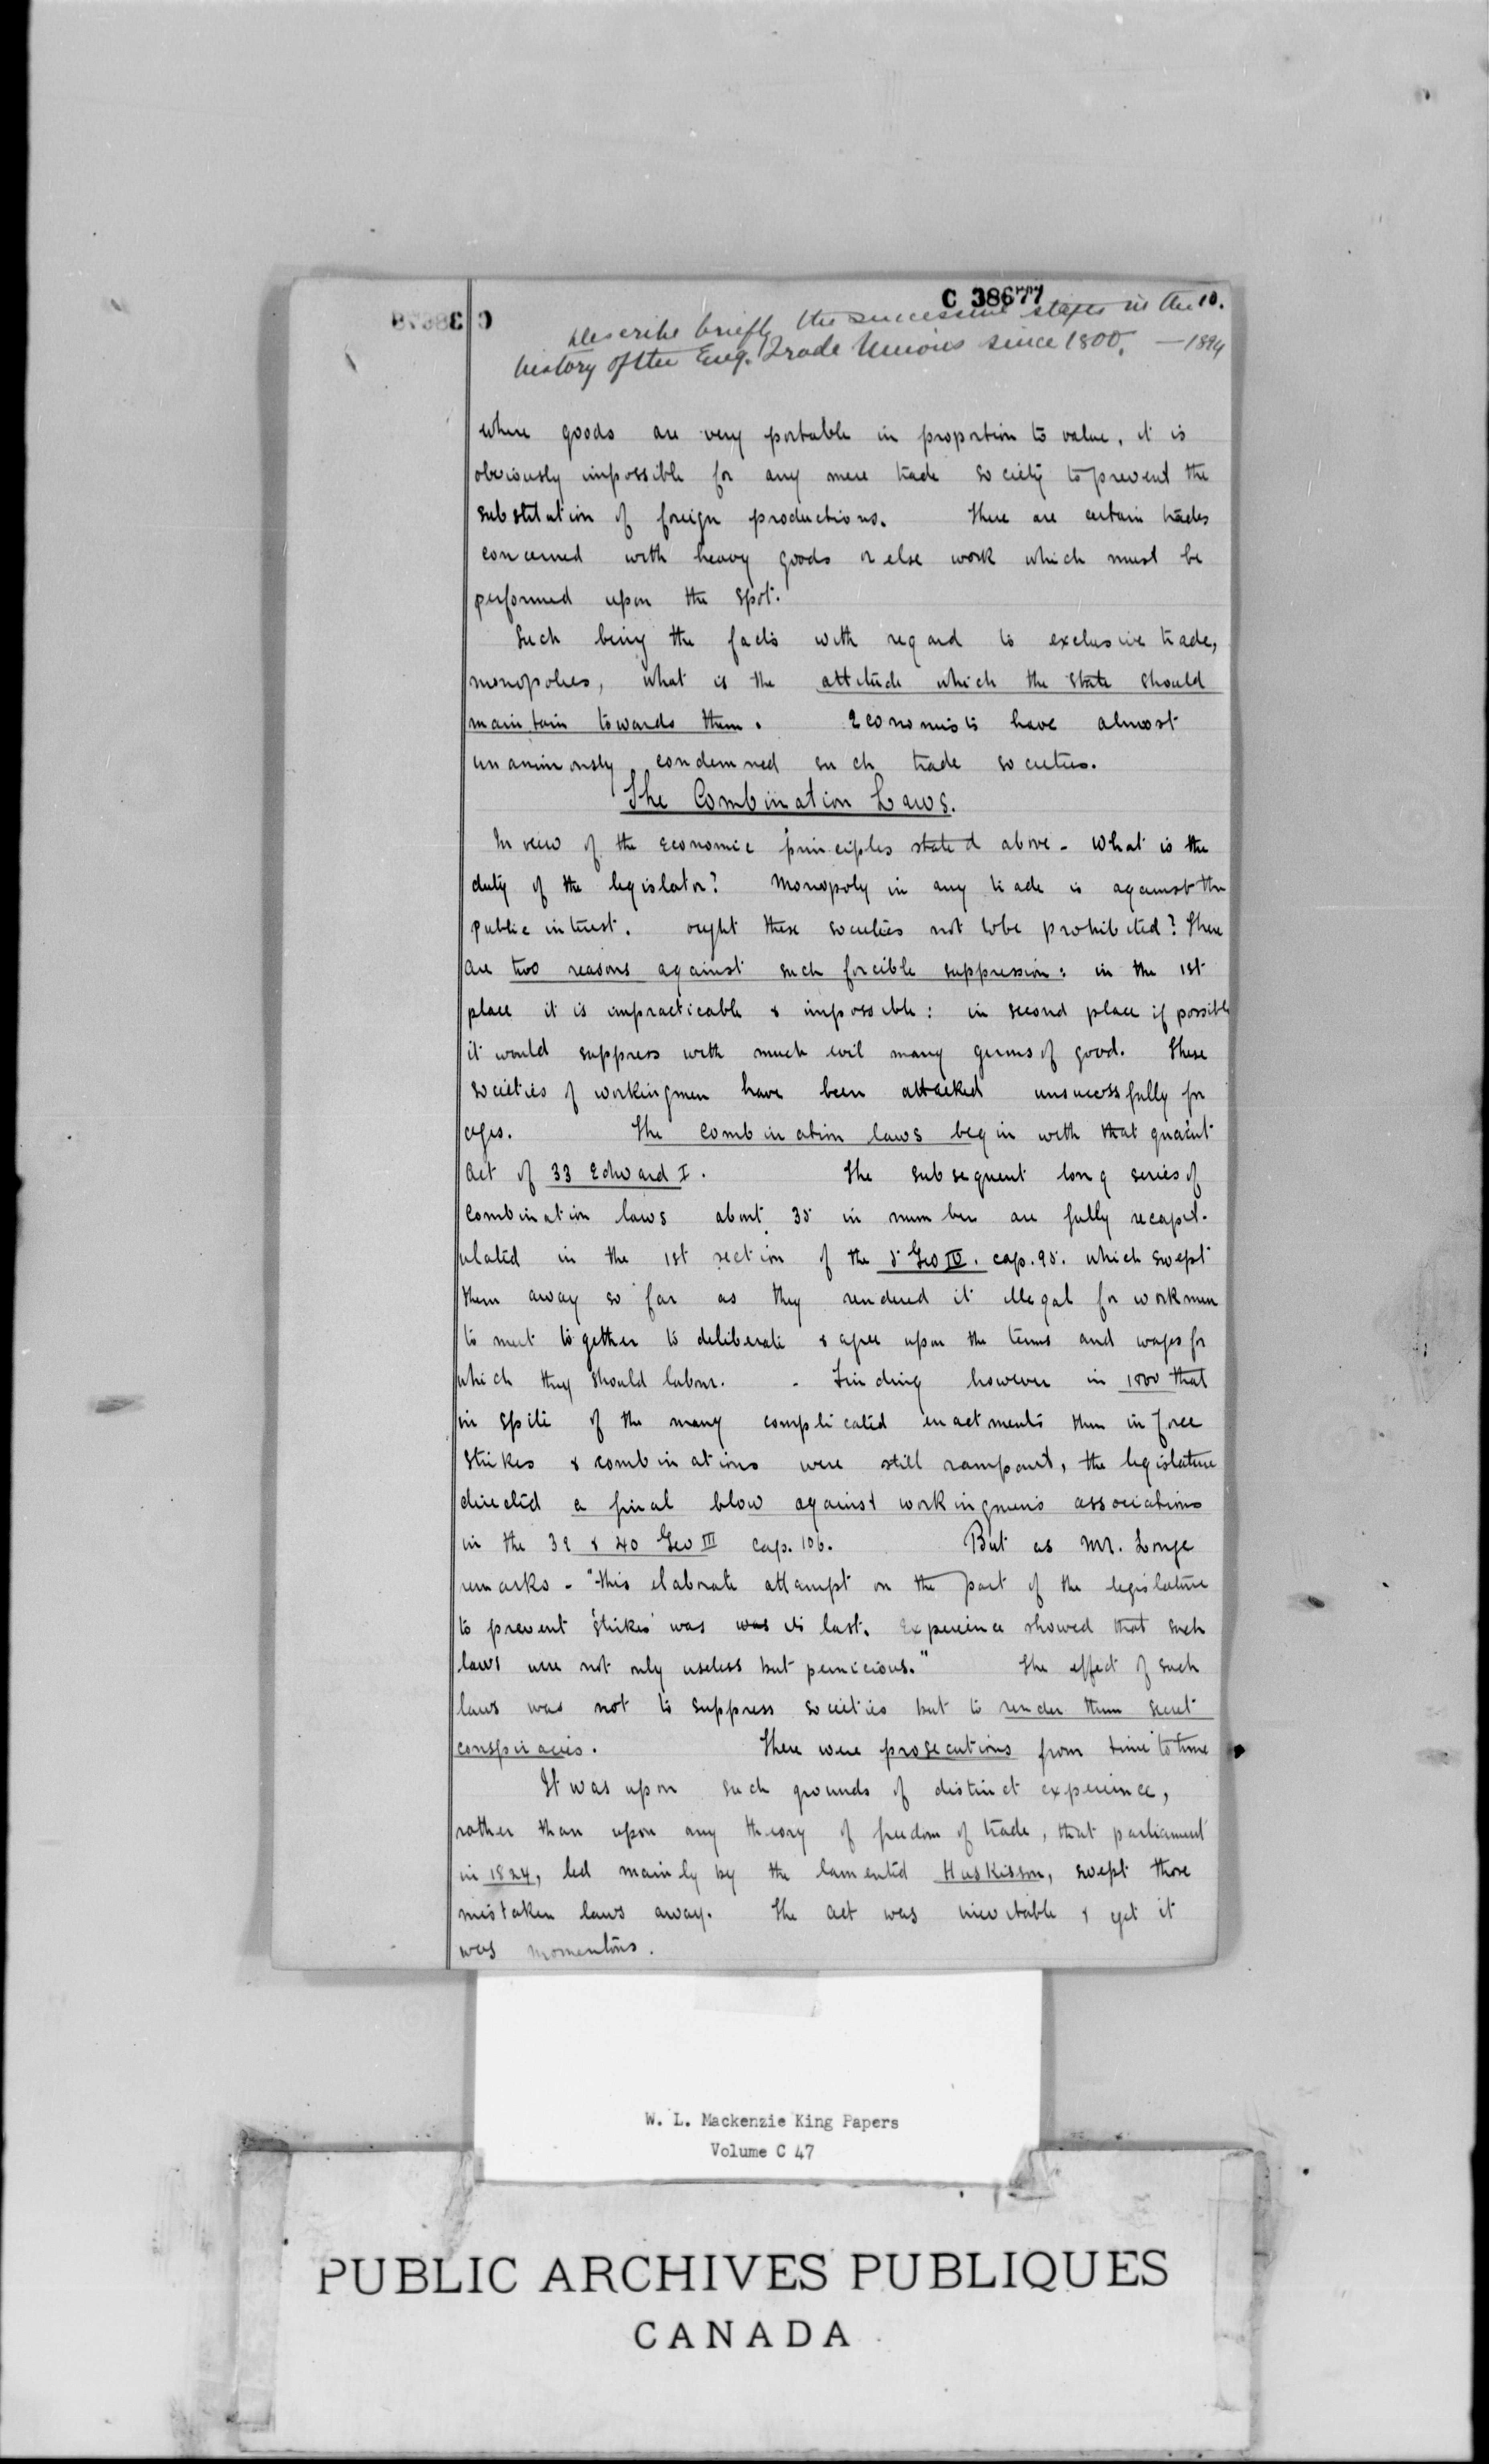 C 38677
10.
Describe briefly the successive stages in the
history of the Eng. Trade Unions since 1800. — 1894
where goods are very portable in proportion to value, it is
obviously impossible for any mere trade society to prevent the
substitution of foreign productions. There are certain trades
concerned with heavy goods or else work which must be
performed upon the spot.
Such being the facts with regard to exclusive trade,
monopolies, what is the attitude which the state should
maintain towards them. Economists have almost
unanimously condemned such trade societies.
The Combination Laws.
In view of the economic principles stated above - what is the
duty of the legislator? Monopoly in any trade is against the
public interest. ought these societies not to be prohibited? There
are two reasons against such forcible suppression: in the 1st
place it is impracticable & impossible: in second place if possible
it would suppress with much evil many germs of good. These
societies of workingmen have been attacked unsuccessfully for
ages. The combination laws begin with that quaint
Act of 33 Edward I. The subsequent long series of
combination laws about 35 in number are fully recapit-
ulated in the 1st section of the 5 Geo IV. cap. 95. which swept
them away so far as they rendered it illegal for workmen
to meet together to deliberate & agree upon the terms and wages for
which they should labour. - Finding however in 1800 that
in spite of the many complicated enactments then in force
strikes & combinations were still rampant, the legislature
directed a final blow against workingmen's associations
in the 39 & 40 Geo III cap. 106. But as Mr. Longe
remarks - "this elaborate attempt on the part of the legislature
to prevent 'strikes' was was its last. Experience showed that such
laws were not only useless but pernicious." The effect of such
laws was not to suppress societies but to render them secret
conspiracies. There were prosecutions from time to time
It was upon such grounds of distinct experience,
rather than upon any theory of freedom of trade, that parliament
in 1824, led mainly by the lamented Huskisson, swept those
mistaken laws away. The act was inevitable & yet it
was momentous.
W. L. Mackenzie King Papers
Volume C 47
PUBLIC ARCHIVES PUBLIQUES
CANADA